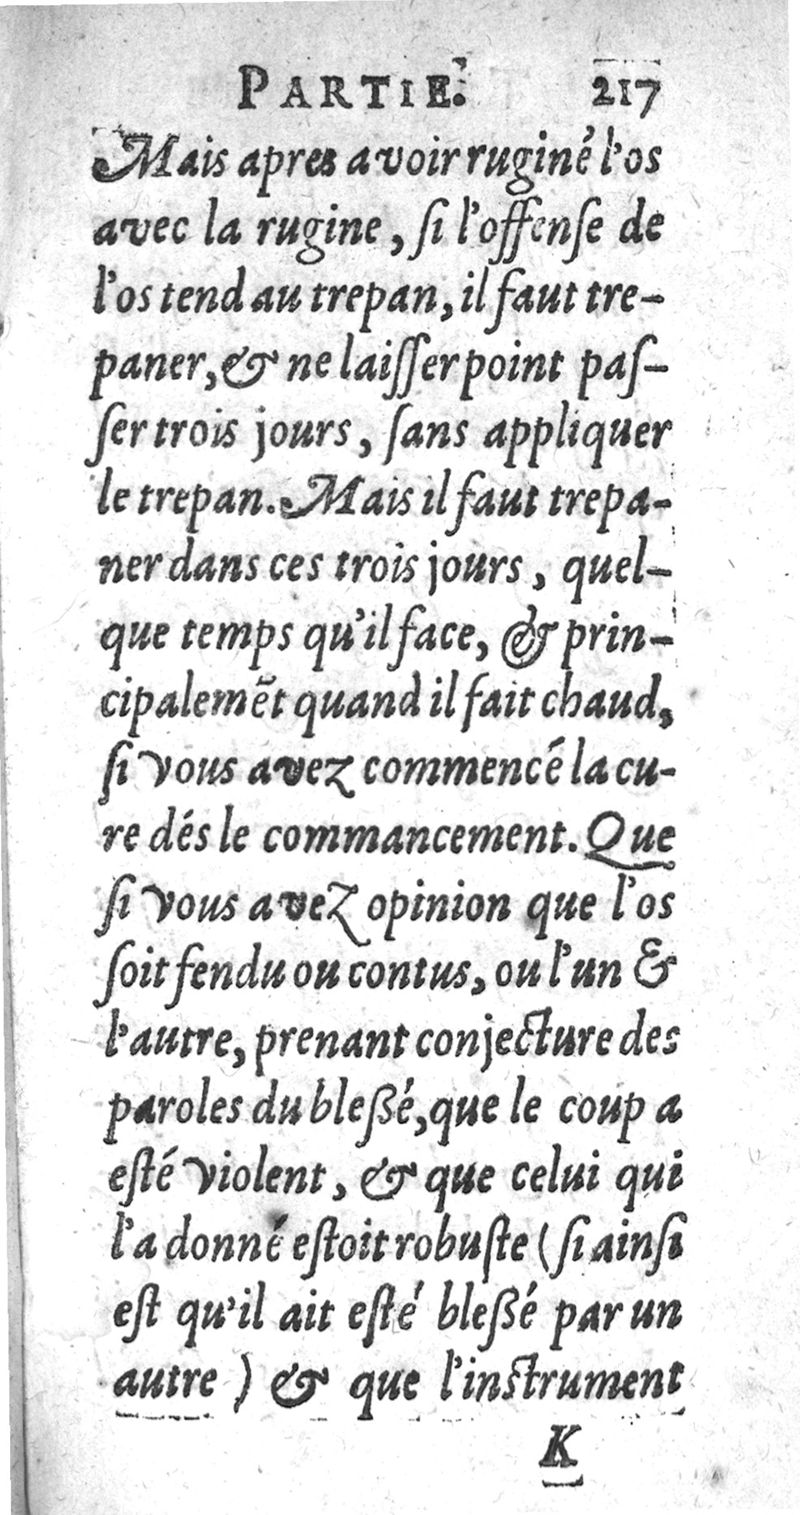 PARTIE. 217
Mais apres avoir ruginé l'os
avec la rugine, ſi l'offenſe de
l'os tend au trepan, il faut tre-
paner, & ne laiſſer point paſ-
ſer trois jours, ſans appliquer
le trepan. Mais il faut trepa-
ner dans ces trois jours, quel-
que temps qu'il face, & prin-
cipalemẽt quand il fait chaud,
ſi vous avez commencé la cu-
re dés le commancement. Que
ſi vous avez opinion que l'os
ſoit fendu ou contus, ou l'un &
l'autre, prenant conjecture des
paroles du bleßé, que le coup a
eſté violent, & que celui qui
l'a donné eſtoit robuſte (ſi ainſi
eſt qu'il ait eſté bleßé par un
autre) & que l'inſtrument
K